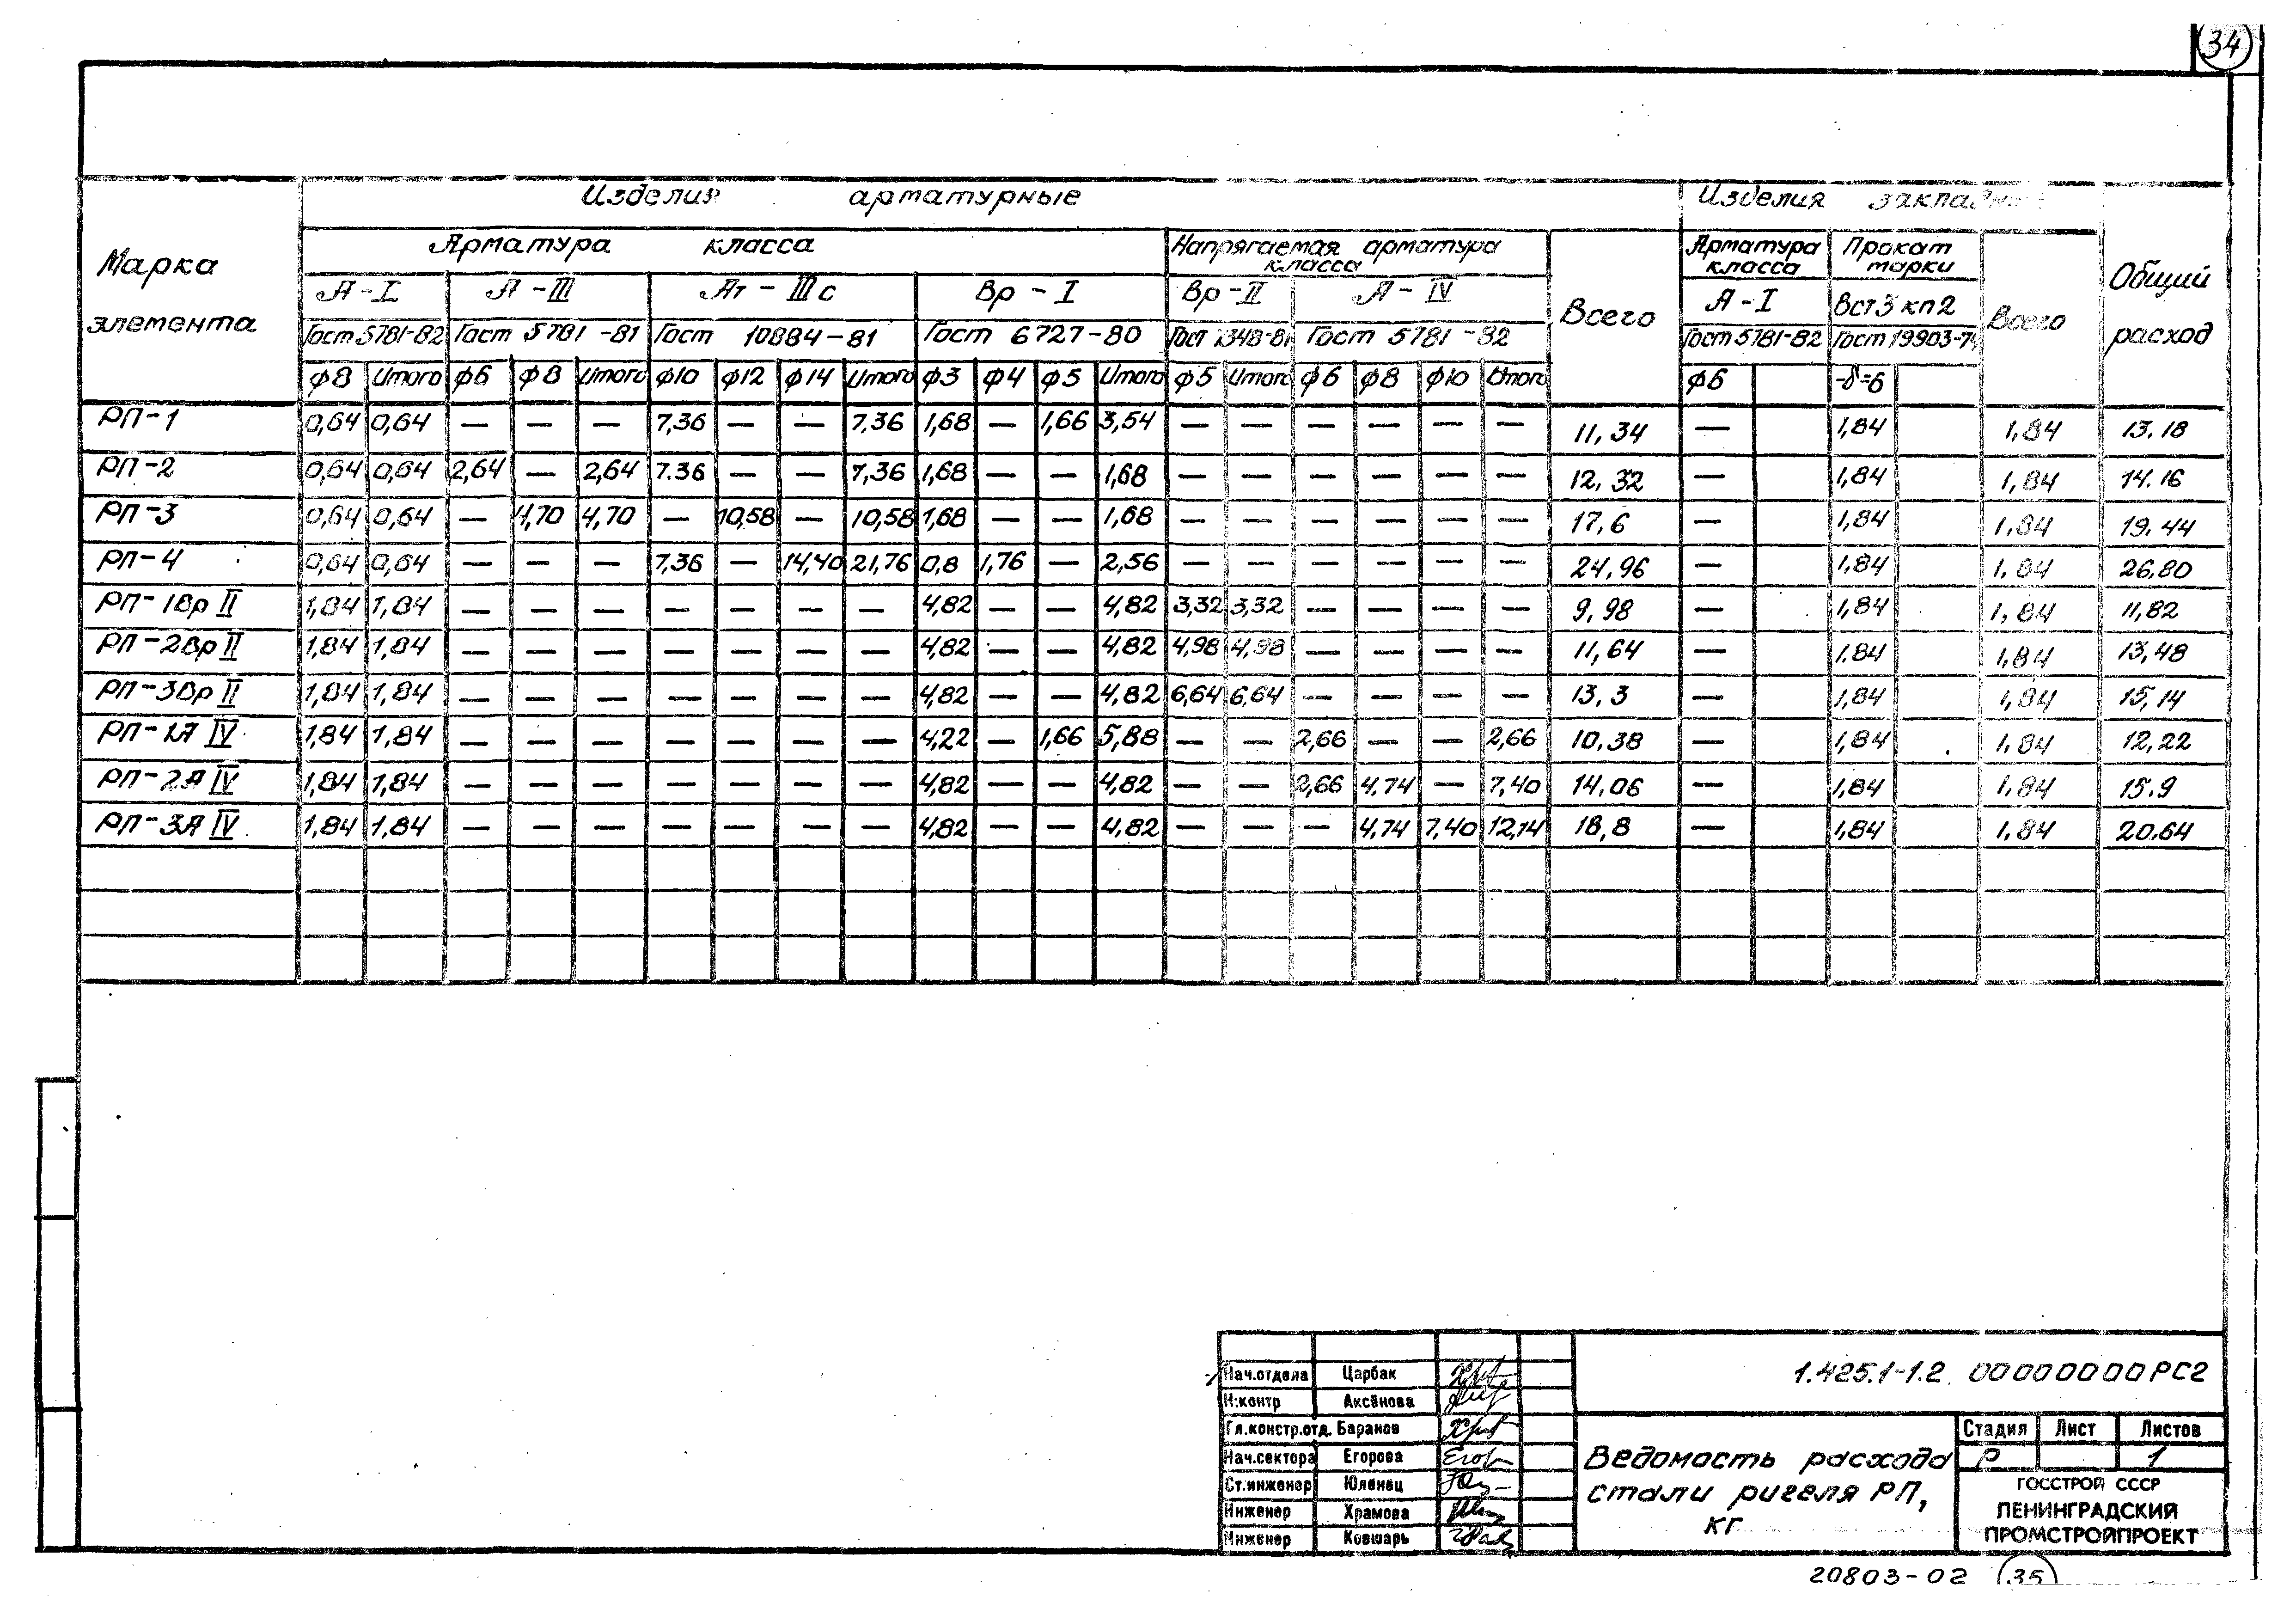 34
Изделия арматурные
Изделия закладные
Марка элемента
Арматура класса
Напрягаемая арматура класса
Всего
Арматура класса
Прокат марки
Всего
Общий расход
А-I
А-III
Ат-IIIс
Вр-I
Вр-II
А-IV
А-I
Вст3кп2
Гост 5781-82
Гост 5781-81
Гост 10884-81
Гост 6727-80
Гост 7348-81
Гост 5781-82
Гост 5781-82
Гост 19903-74
ф8 Итого ф6 ф8 Итого ф10 ф12 ф14 Итого ф3 ф4 ф5 Итого ф5 Итого ф6 ф8 ф10 Итого ф6 -δ=6
РП-1 0,64 0,64 — — — 7,36 — — 7,36 1,68 — 1,66 3,54 — — — — — — 11,34 — 1,84 1,84 13.18
РП-2 0,64 0,64 2,64 — 2,64 7.36 — — 7,36 1,68 — — 1,68 — — — — — — 12,32 — 1,84 1,84 14.16
РП-3 0,64 0,64 — 4,70 4,70 — 10,58 — 10,58 1,68 — — 1,68 — — — — — — 17,6 — 1,84 1,84 19.44
РП-4 0,64 0,64 — — — 7,36 — 14,40 21,76 0,8 1,76 — 2,56 — — — — — — 24,96 — 1,84 1,84 26,80
РП-1Вр II 1,84 1,84 — — — — — — — 4,82 — — 4,82 3,32 3,32 — — — — 9,98 — 1,84 1,84 11,82
РП-2Вр II 1,84 1,84 — — — — — — — 4,82 — — 4,82 4,98 4,98 — — — — 11,64 — 1.84 1,84 13,48
РП-3Вр II 1,84 1,84 — — — — — — — 4,82 — — 4,82 6,64 6,64 — — — — 13,3 — 1,84 1,84 15,14
РП-1А IV 1,84 1,84 — — — — — — — 4,22 — 1,66 5,88 — — 2,66 — — 2,66 10,38 — 1,84 1,84 12,22
РП-2А IV 1,84 1,84 — — — — — — — 4,82 — — 4,82 — — 2,66 4,74 — 7,40 14,06 — 1,84 1,84 15.9
РП-3А IV 1,84 1,84 — — — — — — — 4,82 — — 4,82 — — — 4,74 7,40 12,14 18,8 — 1,84 1,84 20.64
Нач.отдела Царбак
Н.контр Аксёнова
Гл.констр.отд. Баранов
Нач.сектора Егорова
Ст.инженер Юленец
Инженер Храмова
Инженер Ковшарь
1.425.1-1.2. 00000000РС2
Ведомость расхода
стали ригеля РП,
кг
Стадия Лист Листов
Р 1
ГОССТРОЙ СССР
ЛЕНИНГРАДСКИЙ
ПРОМСТРОЙПРОЕКТ
20803-02 35